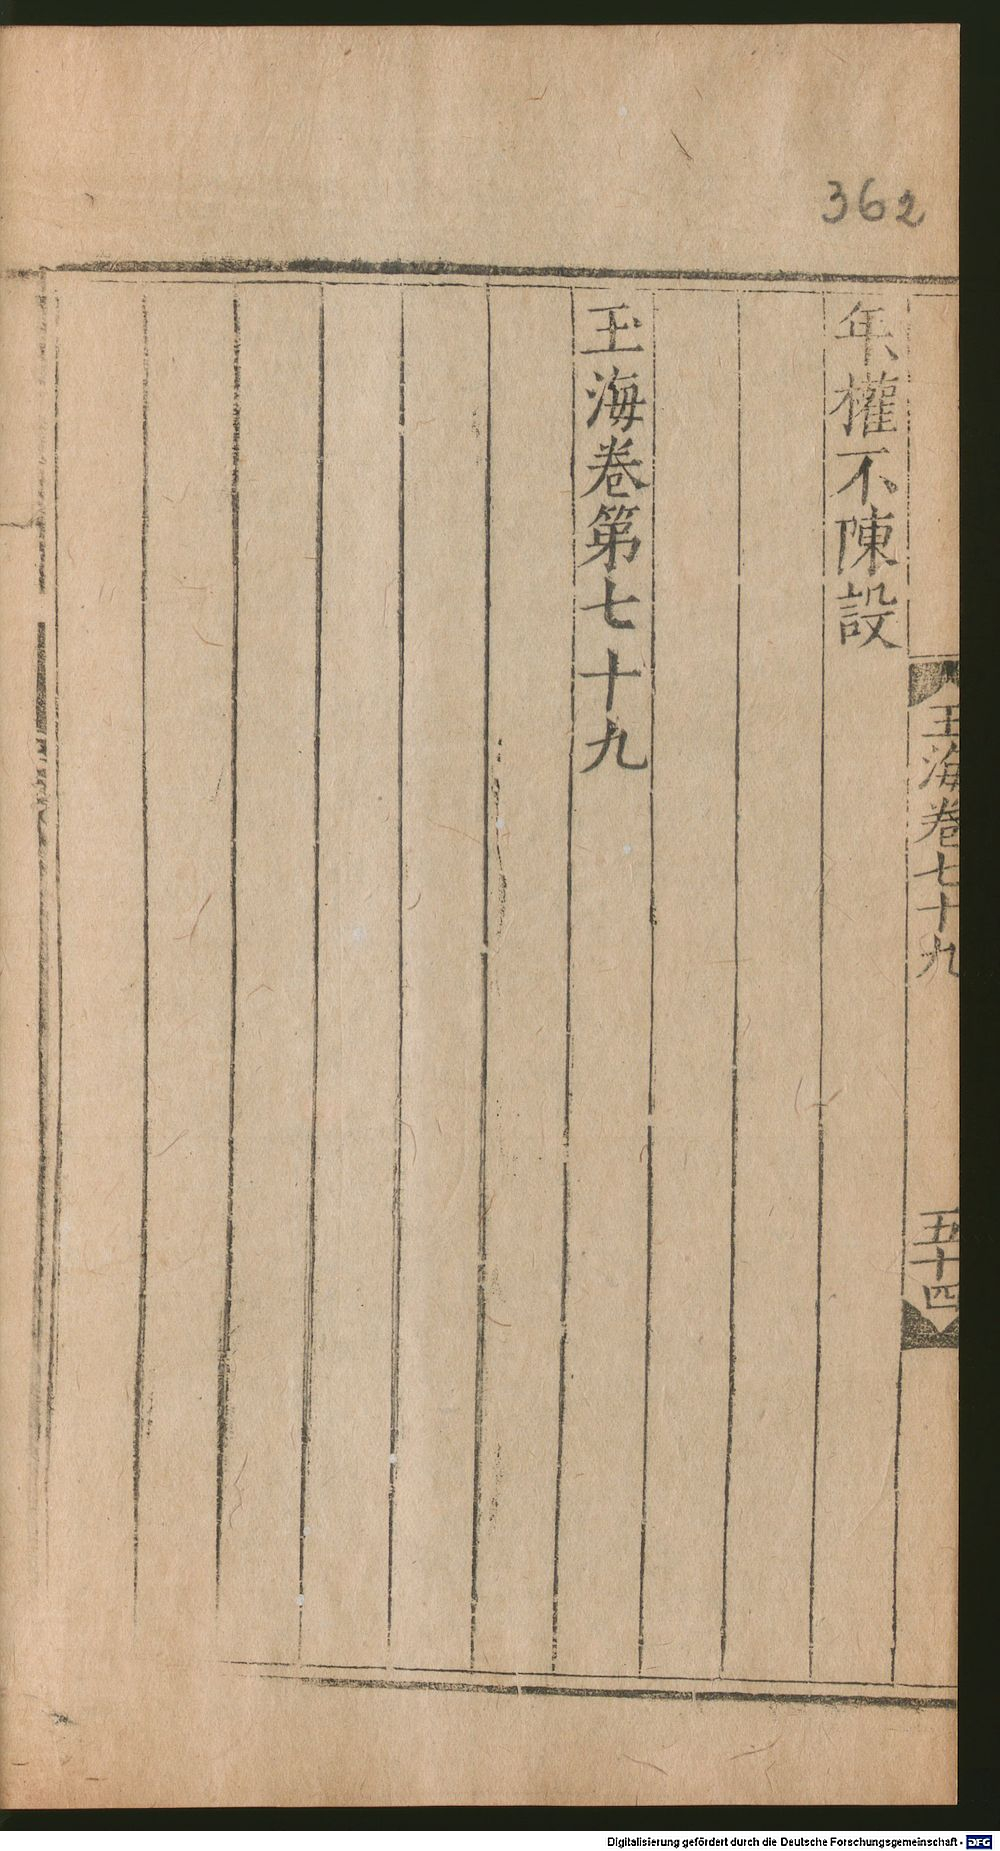 362
年權不陳設
玉海卷第七十九
玉海卷七十九
五十四
Digitalisierung gefördert durch die Deutsche Forschungsgemeinschaft - DFG